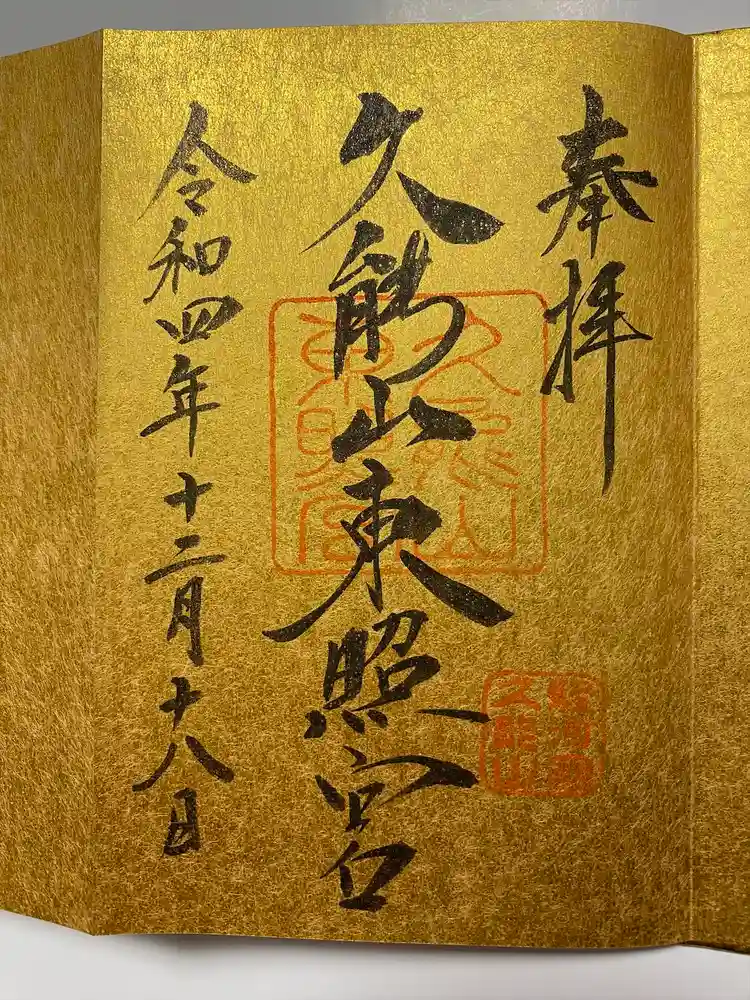 奉拝
久能山東照宮
令和四年十二月十八日
久能山
東照宮
久能山